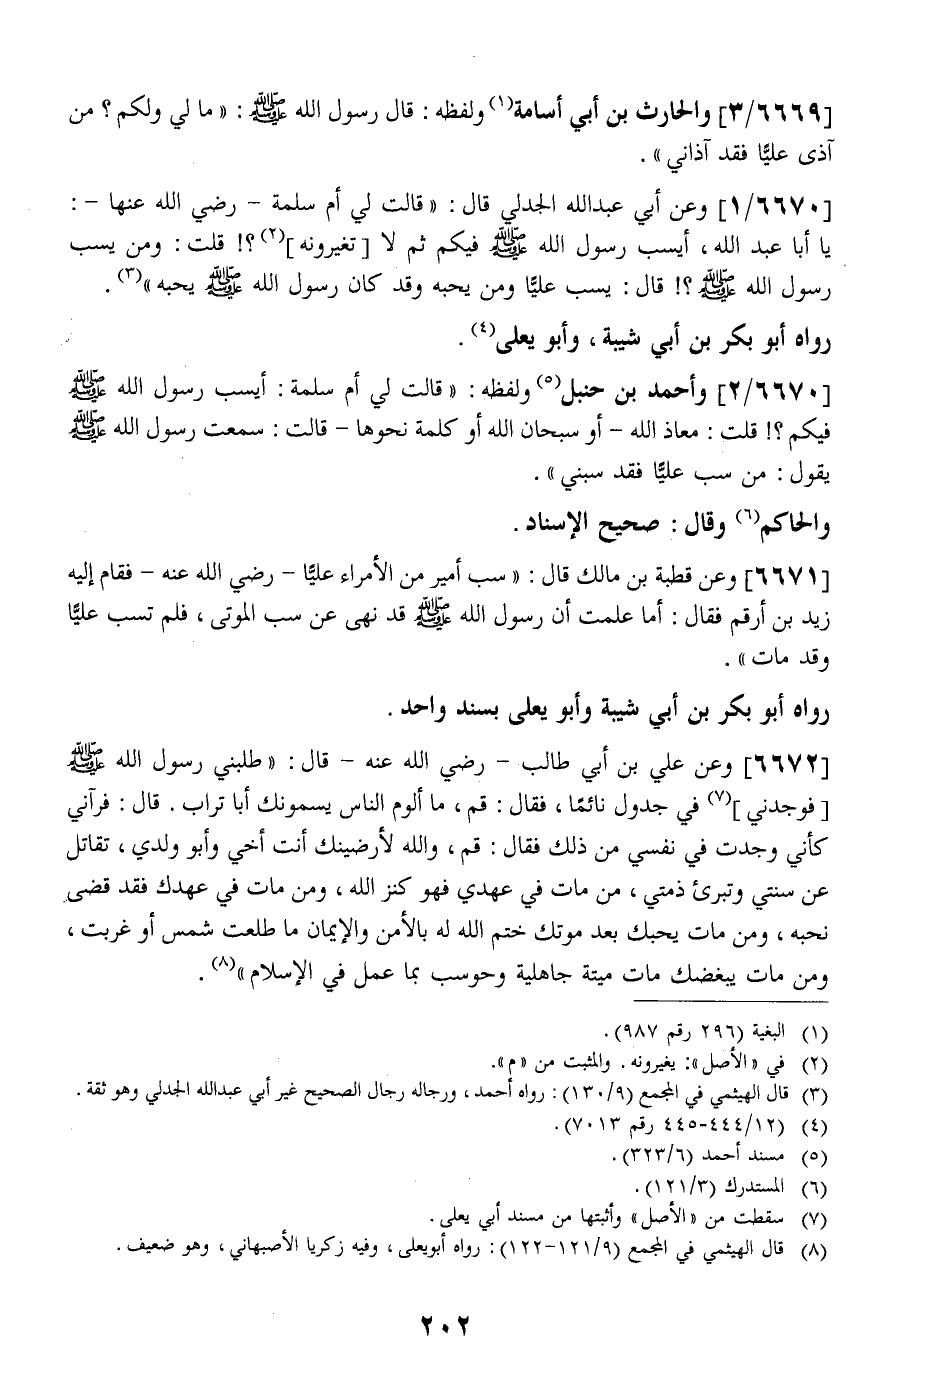 [٣/٦٦٦٩] والحارث بن أبي أسامة(١) ولفظه : قال رسول الله ﷺ : « ما لي ولكم ؟ من
آذى عليًّا فقد آذاني » .
[١/٦٦٧٠] وعن أبي عبدالله الجدلي قال : « قالت لي أم سلمة – رضي الله عنها – :
يا أبا عبد الله ، أيسب رسول الله ﷺ فيكم ثم لا [ تغيرونه ](٢) ؟! قلت : ومن يسب
رسول الله ﷺ ؟! قال : يسب عليًّا ومن يحبه وقد كان رسول الله ﷺ يحبه »(٣) .
رواه أبو بكر بن أبي شيبة ، وأبو يعلى(٤) .
[٢/٦٦٧٠] وأحمد بن حنبل(٥) ولفظه : « قالت لي أم سلمة : أيسب رسول الله ﷺ
فيكم ؟! قلت : معاذ الله – أو سبحان الله أو كلمة نحوها – قالت : سمعت رسول الله ﷺ
يقول : من سب عليًّا فقد سبني » .
والحاكم(٦) وقال : صحيح الإسناد .
[٦٦٧١] وعن قطبة بن مالك قال : « سب أمير من الأمراء عليًّا – رضي الله عنه – فقام إليه
زيد بن أرقم فقال : أما علمت أن رسول الله ﷺ قد نهى عن سب الموتى ، فلم تسب عليًّا
وقد مات » .
رواه أبو بكر بن أبي شيبة وأبو يعلى بسند واحد .
[٦٦٧٢] وعن علي بن أبي طالب – رضي الله عنه – قال : « طلبني رسول الله ﷺ
[ فوجدني ](٧) في جدول نائمًا ، فقال : قم ، ما ألوم الناس يسمونك أبا تراب . قال : فرآني
كأني وجدت في نفسي من ذلك فقال : قم ، والله لأرضينك أنت أخي وأبو ولدي ، تقاتل
عن سنتي وتبرئ ذمتي ، من مات في عهدي فهو كنز الله ، ومن مات في عهدك فقد قضى
نحبه ، ومن مات يحبك بعد موتك ختم الله له بالأمن والإيمان ما طلعت شمس أو غربت ،
ومن مات يبغضك مات ميتة جاهلية وحوسب بما عمل في الإسلام »(٨) .
(١) البغية (٢٩٦ رقم ٩٨٧) .
(٢) في «الأصل»: يغيرونه . والمثبت من «م».
(٣) قال الهيثمي في المجمع (١٣٠/٩) : رواه أحمد ، ورجاله رجال الصحيح غير أبي عبدالله الجدلي وهو ثقة .
(٤) (٤٤٤/١٢-٤٤٥ رقم ٧٠١٣) .
(٥) مسند أحمد (٣٢٣/٦) .
(٦) المستدرك (١٢١/٣) .
(٧) سقطت من «الأصل» وأثبتها من مسند أبي يعلى .
(٨) قال الهيثمي في المجمع (١٢١/٩-١٢٢) : رواه أبويعلى ، وفيه زكريا الأصبهاني ، وهو ضعيف .
٢٠٢